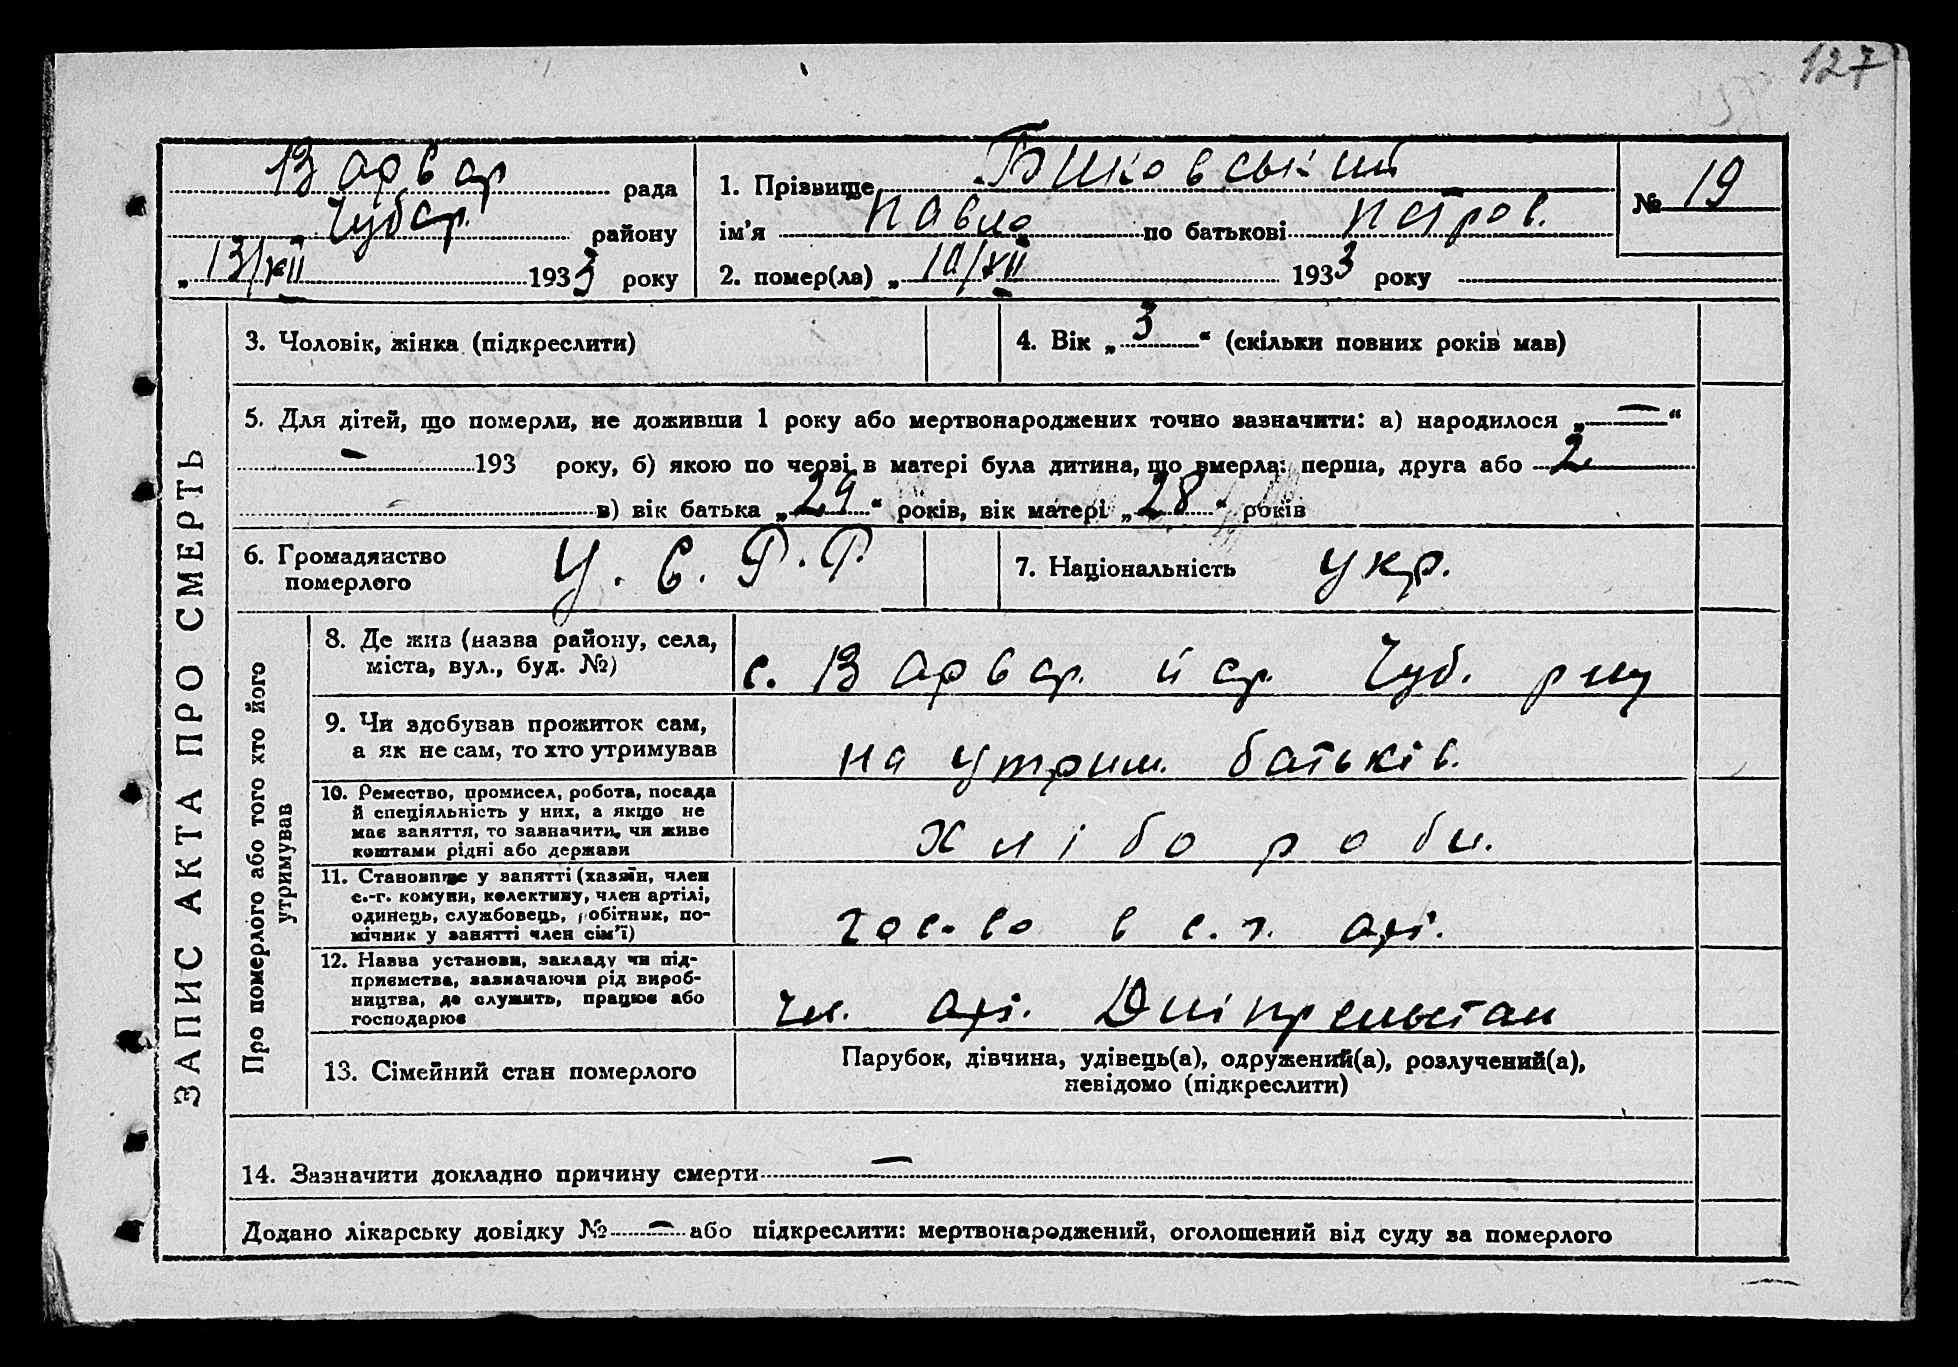 127
Варвар рада
Чубар. району
„ 13/XII 1933 року
1. Прізвище Биковський
ім’я Павло по батькові Петров.
2. помер(ла) „ 10/XII 1933 року
№ 19
ЗАПИС АКТА ПРО СМЕРТЬ
3. Чоловік, жінка (підкреслити)
4. Вік „ 3 “ (скільки повних років мав)
5. Для дітей, що померли, не доживши 1 року або мертвонароджених точно зазначити: а) народилося „ — “
— 193 року, б) якою по черві в матері була дитина, що вмерла: перша, друга або 2
в) вік батька „ 29 “ років, вік матері „ 28 “ років
6. Громадянство
померлого
У. С. Р. Р.
7. Національність укр.
Про померлого або того хто його
утримував
8. Де жив (назва району, села,
міста, вул., буд. №)
с. Варвар. Чуб. р-ну
9. Чи здобував прожиток сам,
а як не сам, то хто утримував
на утрим. батьків.
10. Ремество, промисел, робота, посада
й спеціяльність у них, а якщо не
має заняття, то зазначити, чи живе
коштами рідні або держави
Хлібороби.
11. Становище у занятті (хазяїн, член
с.-г. комуни, колективу, член артілі,
одинець, службовець, робітник, по-
мічник у занятті член сім’ї)
гос-во в с. г. арт.
12. Назва установи, закладу чи під-
приємства, зазначаючи рід вироб-
ництва, де служить, працює або
господарює
чл. арт. Дніпрельстан
13. Сімейний стан померлого
Парубок, дівчина, удівець(а), одружений(а), розлучений(а),
невідомо (підкреслити)
14. Зазначити докладно причину смерти —
Додано лікарську довідку № — або підкреслити: мертвонароджений, оголошений від суду за померлого